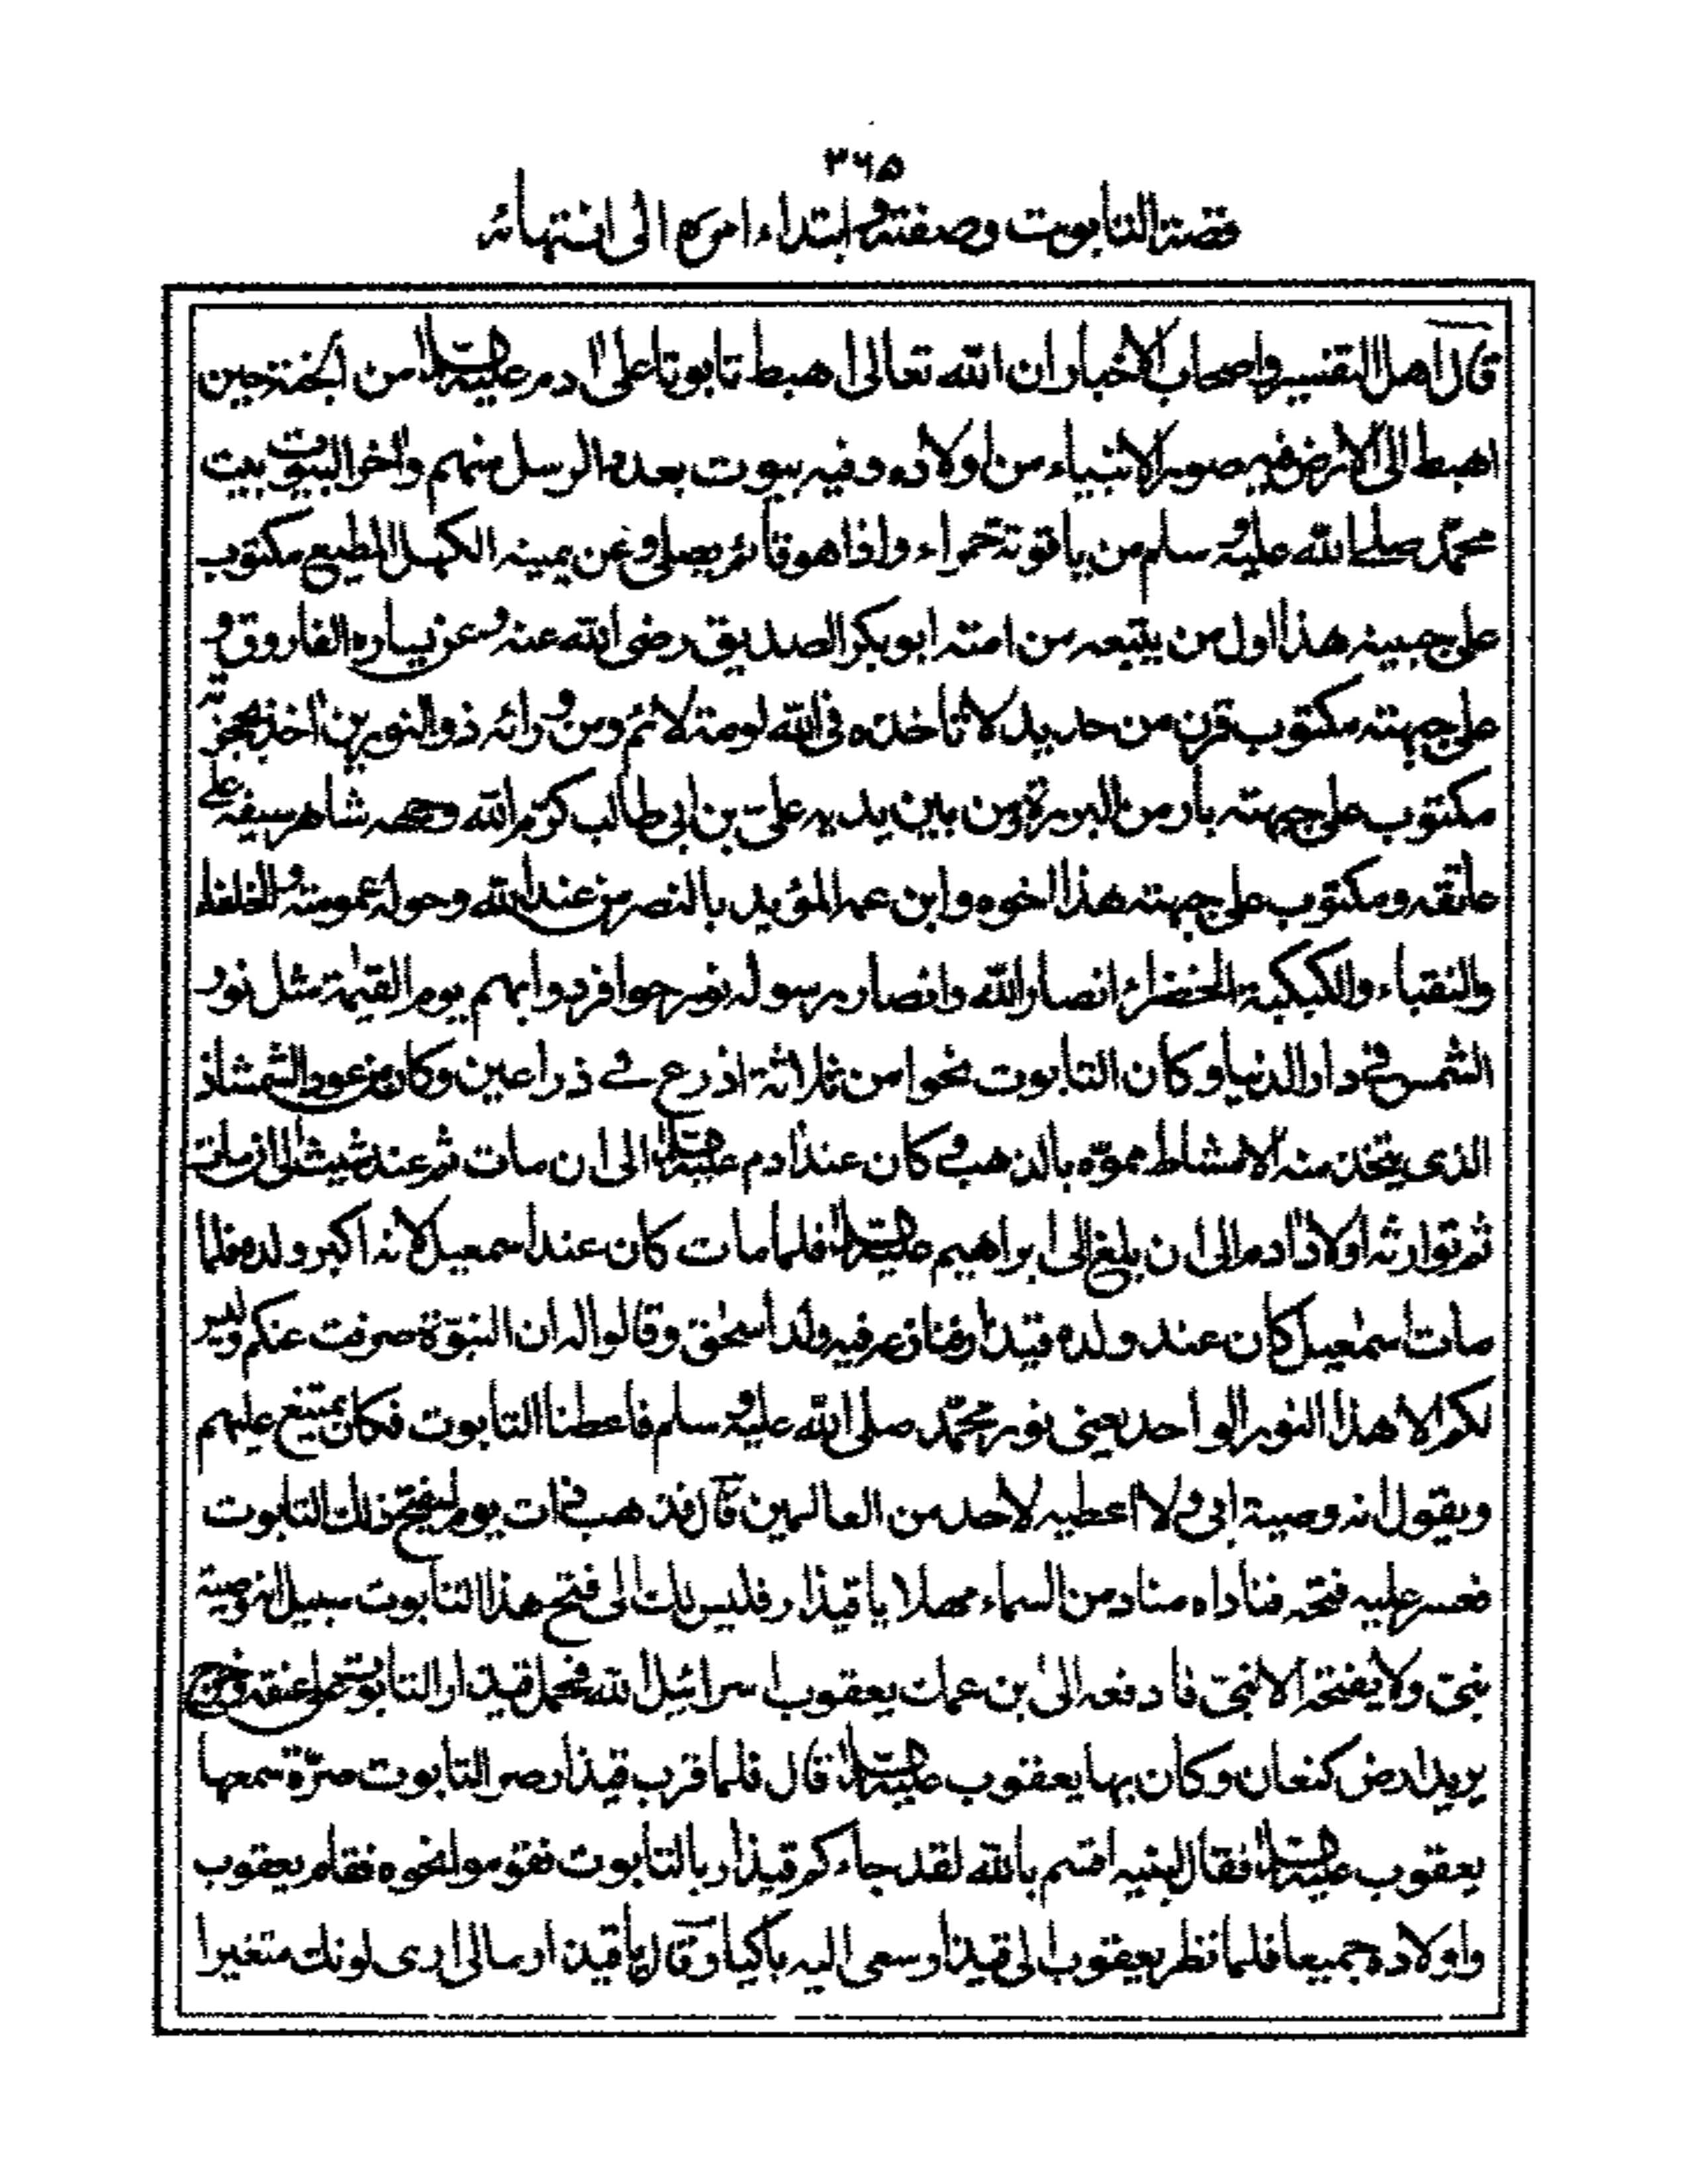 ٣٦٥
قصة التابوت وصفته وابتداء امره الى انتهائه
قال اهل التفسير واصحاب الاخبار ان الله تعالى اهبط تابوتا على ادم عليه السلام من الجنة حين
اهبط الى الارض فيه صور الانبياء من اولاده وفيه بيوت بعدد الرسل منهم واخر البيوت بيت
محمد صلى الله عليه وسلم من ياقوتة حمراء واذا هو قائم يصلى وعن يمينه الكهل المطيع مكتوب
على جبينه هذا اول من يتبعه من امته ابو بكر الصديق رضى الله عنه وعن يساره الفاروق و
على جبهته مكتوب قرن من حديد لا تاخذه فى الله لومة لائم ومن ورائه ذو النورين اخذ بحجزته
مكتوب على جبهته بار من البررة ومن بين يديه على بن ابى طالب كرم الله وجهه شاهر سيفه على
عاتقه ومكتوب على جبهته هذا اخوه وابن عمه المؤيد بالنصر من عند الله وحوله عمومته والخلفاء
والنقباء والكبكبة الخضراء انصار الله وانصار رسوله نور حوافر دوابهم يوم القيمة مثل نور
الشمس فى دار الدنيا وكان التابوت نحوا من ثلاثة اذرع فى ذراعين وكان من عود الشمشاذ
الذى يتخذ منه الامشاط مموّه بالذهب وكان عند ادم عليه السلام الى ان مات ثم عند شيث الى ان مات
ثم توارثه اولاد ادم الى ان بلغ الى ابراهيم عليه السلام فلما مات كان عند اسمعيل لانه اكبر ولده فلما
مات اسمعيل كان عند ولده قيذار فنازعه فيه ولد اسحق وقالوا له ان النبوّة صرفت عنكم وليس
لكم الا هذا النور الواحد يعنى نور محمد صلى الله عليه وسلم فاعطنا التابوت فكان يمتنع عليهم
ويقول انه وصية ابى ولا اعطيه لاحد من العالمين قال فذهب ذات يوم ليفتح ذلك التابوت
فعسر عليه فتحه فناداه مناد من السماء مهلا يا قيذار فليس لك الى فتح هذا التابوت سبيل انه وصية
نبىّ ولا يفتحه الا نبىّ فادفعه الى ابن عمك يعقوب اسرائيل الله فحمل قيذار التابوت على عنقه وخرج
يريد ارض كنعان وكان بها يعقوب عليه السلام قال فلما قرب قيذار صر التابوت صرّة سمعها
يعقوب عليه السلام فقال لبنيه اقسم بالله لقد جاءكم قيذار بالتابوت فقوموا نحوه فقام يعقوب
واولاده جميعا فلما نظر يعقوب الى قيذار وسعى اليه باكيا وقال يا قيذار مالى ارى لونك متغيرا